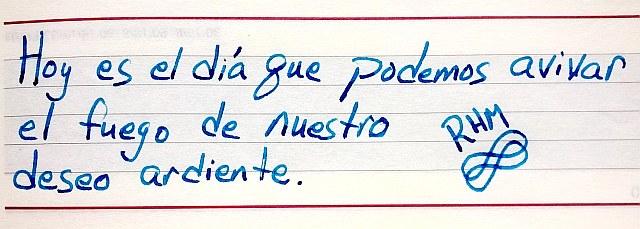 Hoy es el diá que podemos avivar
el fuego de nuestro
RHM
deseo ardiente.